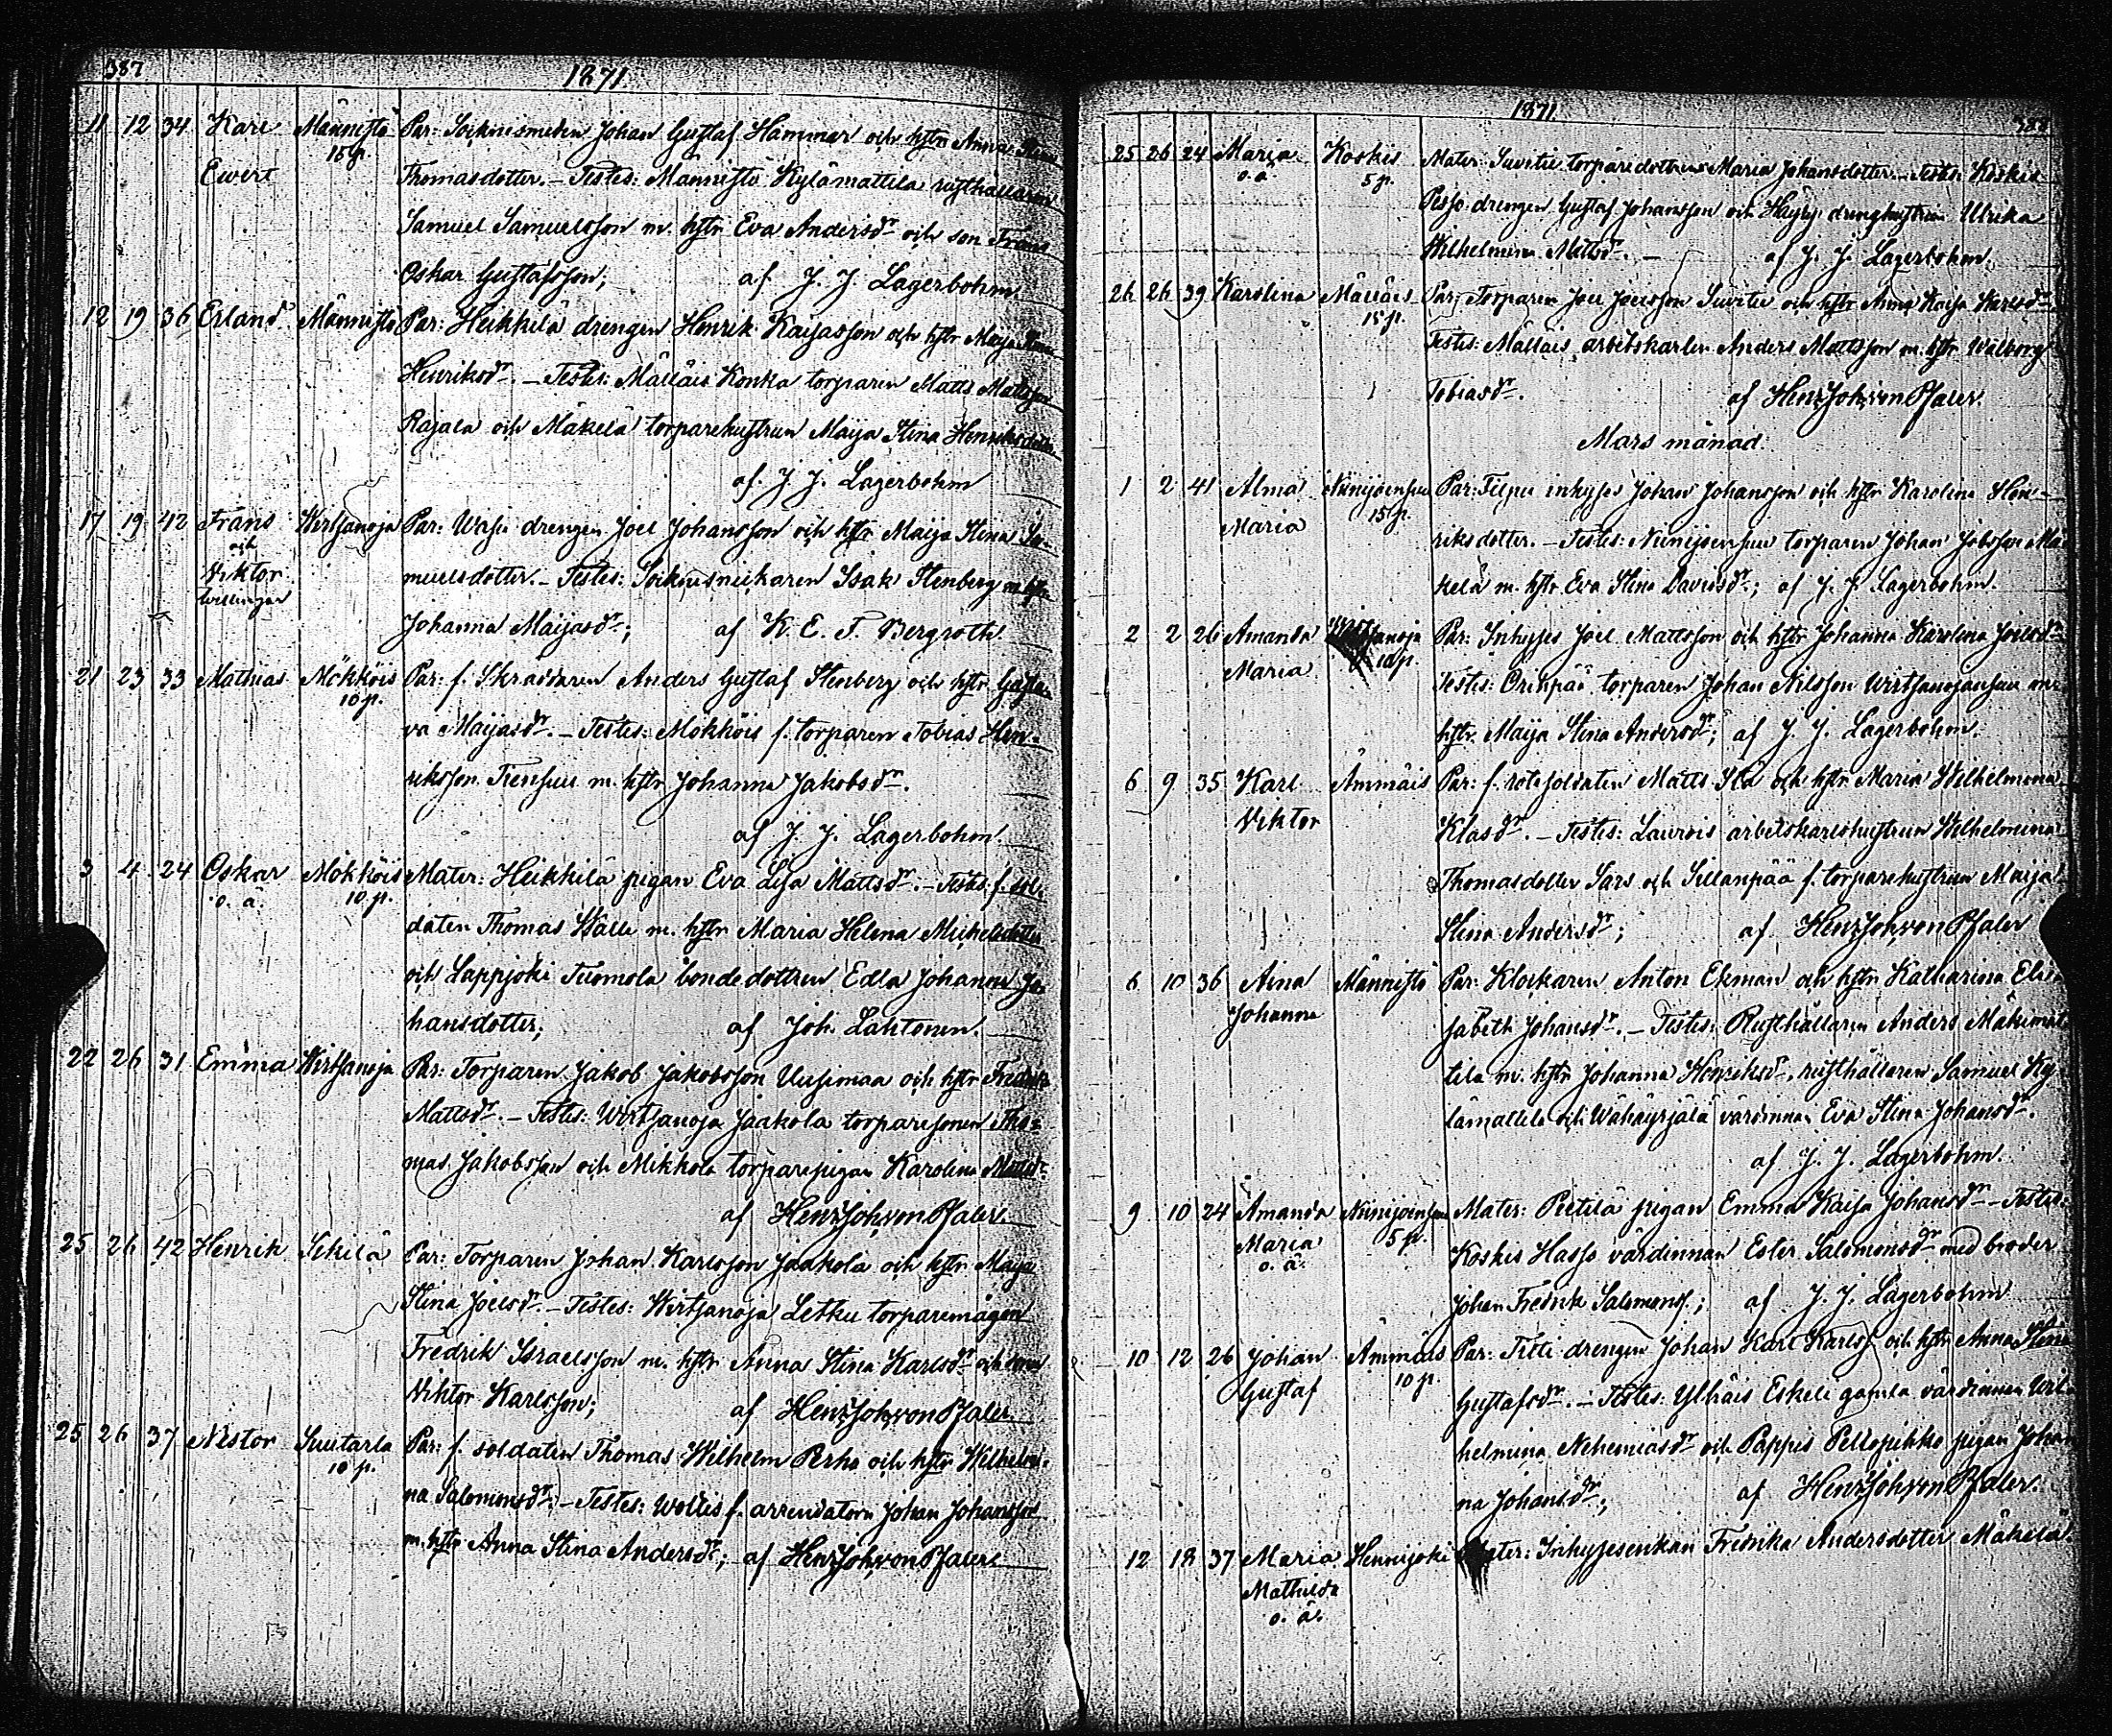 387
1871.
11 12 34 Karl Männistö Par: Sockensmeden Johan Gustaf Hammar och hstr Anna Stina
15 p.
Ewert Thomasdotter. – Testes: Männistö Kylämattila rusthållaren
Samuel Samuelsson m. hstr Eva Andersdr och son Frans
Oskar Gustafsson; af J. J. Lagerbohm.
12 19 36 Erland Männistö Par: Heikkilä drengen Henrik Kaijasson och hstr Maija Stina
Henriksdr. – Testes: Mällais Konka torparen Matts Mattsson
Rajala och Mäkelä torparehustrun Maija Stina Henriksdotter
af J. J. Lagerbohm
17 19 42 Frans Wirtsanoja Par: Wahu drengen Joel Johansson och hstr Maija Stina Sa-
och
Viktor muelsdotter. – Testes: Sockensnickaren Isak Stenberg m. hstr
tvillingar
Johanna Maijasdr; af K. E. F. Bergroth
21 23 33 Mathias Mökköis Par: f. Skräddaren Anders Gustaf Stenberg och hstr Gusta-
10 p.
va Maijasdr. – Testes: Mökköis f. torparen Tobias Hen-
riksson m. hstr Johanna Jakobsdr.
af J. J. Lagerbohm.
3 4 24 Oskar Mökköis Mater: Heikkilä pigan Eva Lisa Mattsdr. – Testes f. sol-
o. ä. 10 p.
daten Thomas Walli m. hstr Maria Helena Michelsdotter
och Lappjoki Tuomola bondedottren Edla Johanna Jo-
hansdotter; af Joh. Lahtonen.
22 26 31 Emma Wirtsanoja Par: Torparen Jakob Jakobsson Uusimaa och hstr Fredrika
Mattsdr. – Testes: Wirtsanoja Jaakola torparesonen Tho-
mas Jakobsson och Mikkola torparepigan Karolina Mattsdr.
af Henr Joh von Pfaler.
25 26 42 Henrik Sikilä Par: Torparen Johan Karlsson Jaakola och hstr Maija
Stina Joelsdr. – Testes: Wirtsanoja Letku torparemågen
Fredrik Israelsson m. hstr Anna Stina Karlsdr och
Viktor Karlsson; af Henr Joh von Pfaler
25 26 37 Nestor Suutarla Par: f. soldaten Thomas Wilhelm Perho och hstr Wilhelmi-
10 p.
na Salomonsdr. – Testes: Woltis f. arrendatorn Johan Johansson
m. hstr Anna Stina Andersdr; af Henr Joh von Pfaler
1871
388
25 26 24 Maria Koskis Mater: Suvitie torparedottren Maria Johansdotter. – Testes: Koskis
o. ä. 5 p.
Pesso drengen Gustaf Johansson och Häyry drenghustrun Ulrika
Wilhelmina Mattsdr. – af J. J. Lagerbohm.
26 26 39 Karolina Mällais Par: Torparen Joel Joelsson Suvitie och hstr Anna Kaisa Karlsdr
15 p.
Testes: Mällais arbetskarlen Anders Mattsson m. hstr Walborg
Tobiasdr. af Henr Joh von Pfaler.
Mars månad.
1 2 41 Alma Niinijoensuu Par: Filpu inhyses Johan Johansson och hstr Karolina Hen-
15 p.
Maria riksdotter. – Testes: Niinijoensuu torparen Johan Jobsson Mä-
kelä m. hstr Eva Stina Davidsdr; af J. J. Lagerbohm.
2 2 26 Amanda Wirtsanoja Par: Inhyses Joel Mattsson och hstr Johanna Karolina Joelsdr
10 p.
Maria Testes: Orinpää torparen Johan Nilsson Wirtsanojansuu m.
hstr. Maija Stina Andersdr; af J. J. Lagerbohm.
6 9 35 Karl Ämmäis Par: f. rotesoldaten Matts Ilä och hstr Maria Wilhelmina
Viktor Klasdr. – Testes: Laurois arbetskarlshustrun Wilhelmina
Thomasdotter Sars och Sillanpää f. torparehustrun Maija
Stina Andersdr; af Henr Joh von Pfaler
6 10 36 Aina Männistö Par: Klockaren Anton Ekman och hstr Katharina Eli-
Johanna sabeth Johansdr. – Testes: Rusthållaren Anders Mäkimat-
tila m. hstr Johanna Henriksdr, rusthållaren Samuel Ky-
lämattila och Wähäyrjälä värdinnan Eva Stina Johansdr.
af J. J. Lagerbohm.
9 10 24 Amanda Niinijoensuu Mater: Pietilä pigan Emma Kaisa Johansdr – Testes:
Maria 5 p. Koskis Hasso värdinnan Ester Salomonsdr med broder
o. ä.
Johan Fredrik Salomons.; af J. J. Lagerbohm
10 12 26 Johan Ämmäis Par: Titti drengen Johan Karl Karlss. och hstr Anna Stina
10 p.
Gustaf Gustafsdr. – Testes: Ylhäis Eskeli gamla värdinnan Wil-
helmina Nehemiasdr och Pappis Peltopikko pigan Johan-
na Johansdr; af Henr Joh von Pfaler.
12 18 37 Maria Hennijoki Mater: Inhysesenkan Fredrika Andersdotter Mäkelä.
Mathilda
o. ä.